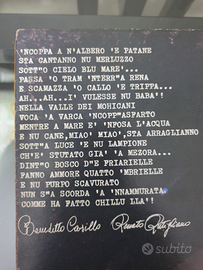 'NCOPPA A N'ALBERO 'E PATANE
STA CANTANNO NU MERLUZZO
SOTT'O CIELO BLU MARE'...
PASSA 'O TRAM 'NTERR'A RENA
E SCAMAZZA 'O CALLO 'E TRIPPA...
AH...AH...I' VULESSE NU BABA'!
NELLA VALLE DEI MOHICANI
VOCA 'A VARCA 'NCOPP'ASFARTO
MENTRE A MARE E' 'NFOSA L'ACQUA
E NU CANE, MIAO' MIAO', STA ARRAGLIANNO
SOTT'A LUCE 'E NU LAMPIONE
CH'E' STUTATO GIA' 'A MEZORA...
DINT'O BOSCO D''E FRIARIELLE
FANNO AMMORE QUATTO 'MBRIELLE
E NU PURPO SCAVURATO
NUN S''A SCORDA 'A 'NNAMMURATA
COMME HA FATTO CHILLU LLA'!
Benedetto Casillo Renato Rutigliano
subito